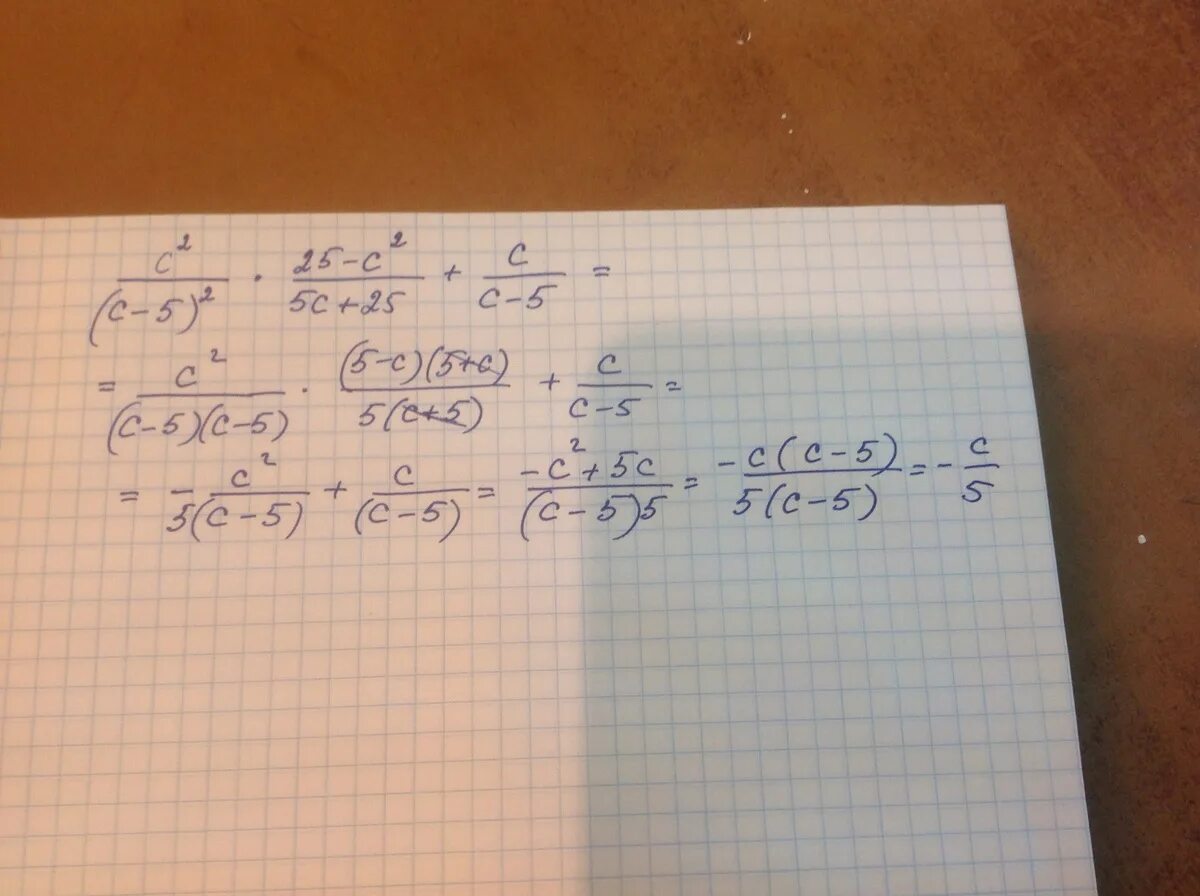 c²/(c-5)² · (25-c²)/(5c+25) + c/(c-5) =
= c²/((c-5)(c-5)) · ((5-c)(5+c))/(5(c+5)) + c/(c-5) =
= - c²/(5(c-5)) + c/((c-5)) = (-c²+5c)/((c-5)5) = (-c(c-5))/(5(c-5)) = - c/5